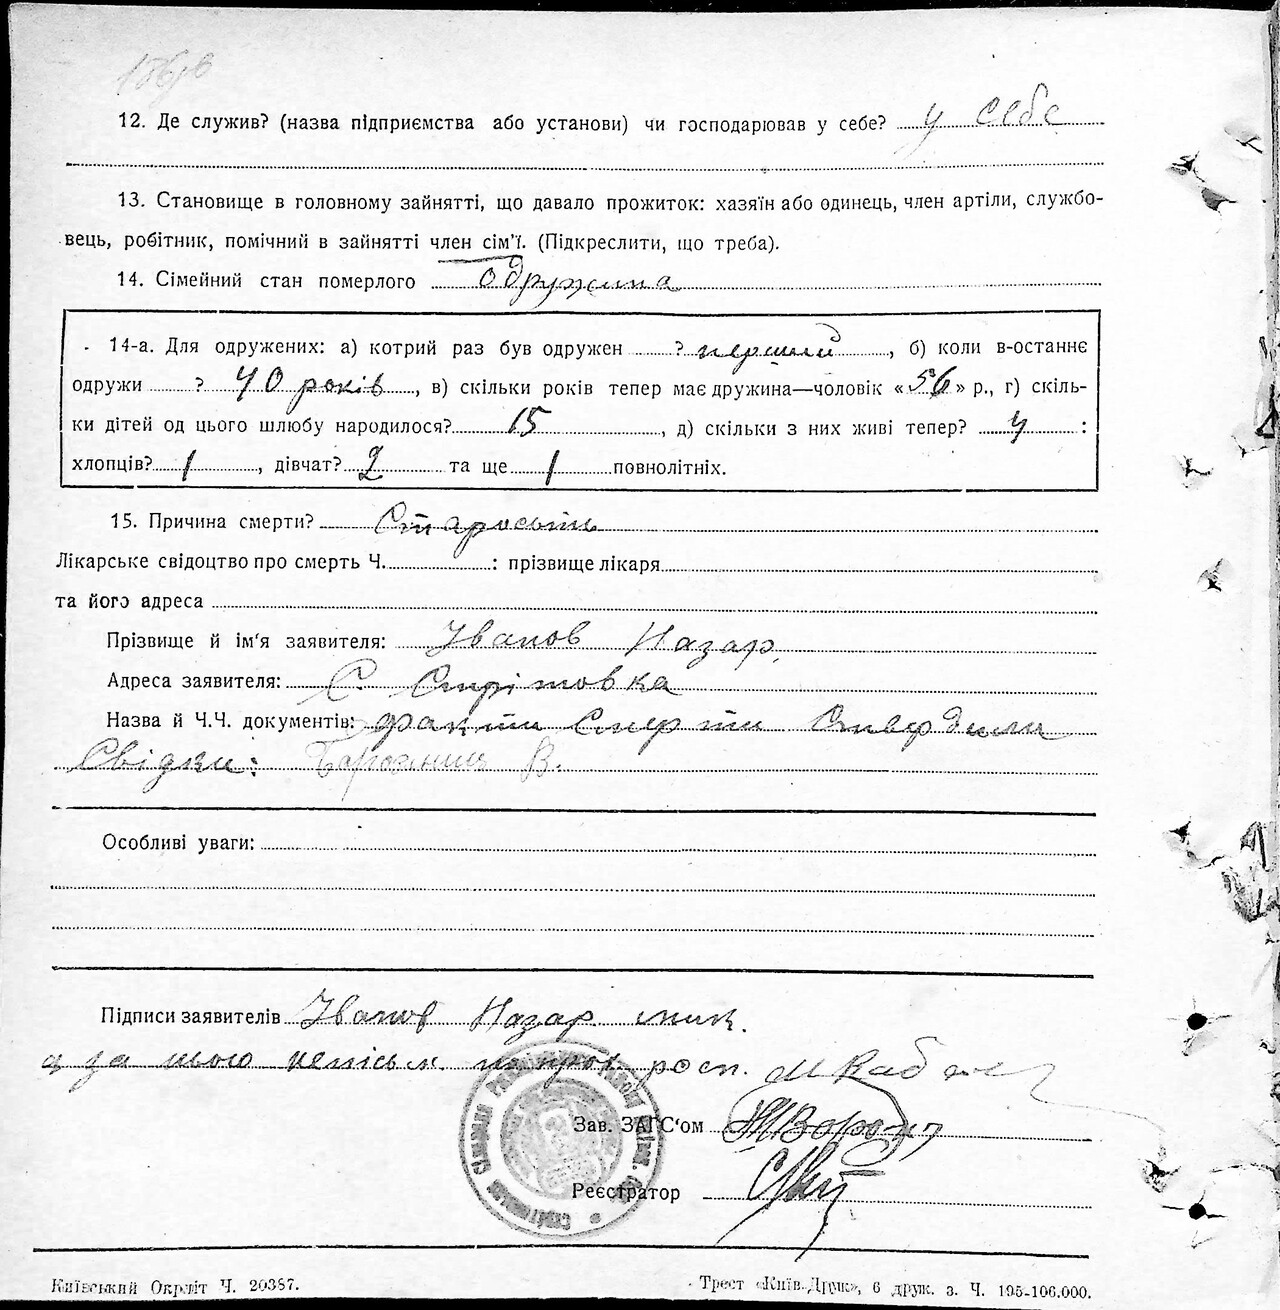 12. Де служив? (назва підприємства або установи) чи господарював у себе? у себе
13. Становище в головному зайнятті, що давало прожиток: хазяїн або одинець, член артіли, службо-
вець, робітник, помічний в зайнятті член сім'ї. (Підкреслити, що треба).
14. Сімейний стан померлого одружина
14-а. Для одружених: а) котрий раз був одружен ? перший, б) коли в-останнє
одружи ? 40 років, в) скільки років тепер має дружина—чоловік «56» р., г) скіль-
ки дітей од цього шлюбу народилося? 15, д) скільки з них живі тепер? 4 :
хлопців? 1, дівчат? 2 та ще 1 повнолітніх.
15. Причина смерти? Старость
Лікарське свідоцтво про смерть Ч. : прізвище лікаря
та його адреса
Прізвище й ім'я заявителя: Іванов Назар
Адреса заявителя: С. Стрітовка
Назва й Ч.Ч. документів: факти смерти ствердили
Свідки: В.
Особливі уваги:
Підписи заявителів Іванов Назар
а за нього непісьм. росп.
Зав. ЗАГС'ом
Реєстратор
Київський Окрліт Ч. 20387.
Трест «Київ-Друк», 6 друк. з. Ч. 195-106.000.